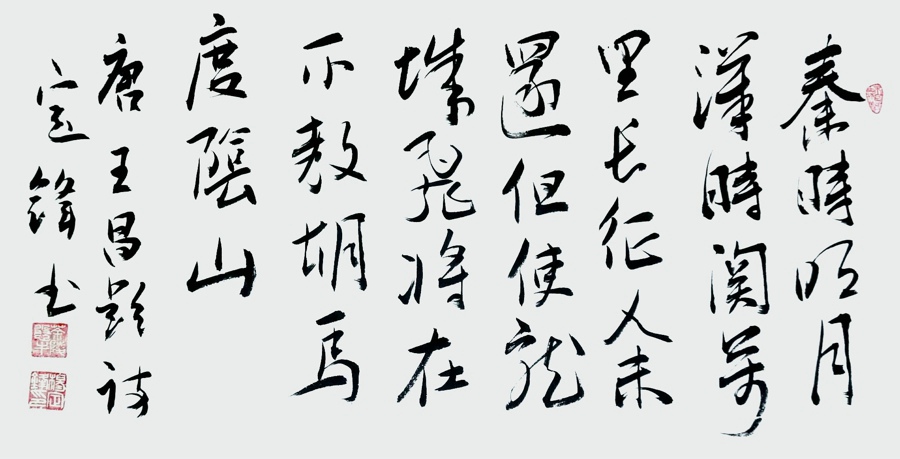 秦時明月
漢時関萬
里长征人未
還但使龍
城飛將在
不教胡馬
度陰山
唐王昌齡詩
定书